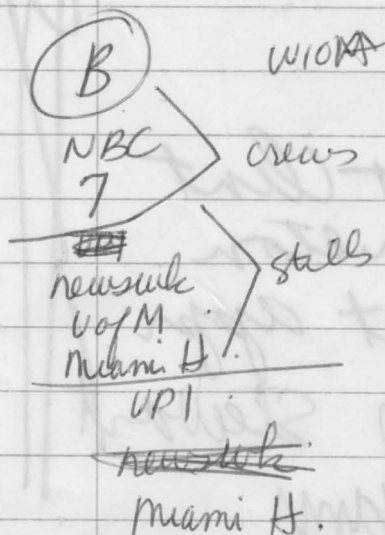 B
NBC
7
crews
newswk
U of M
Miami H.
stills
UPI
newswk
Miami H.